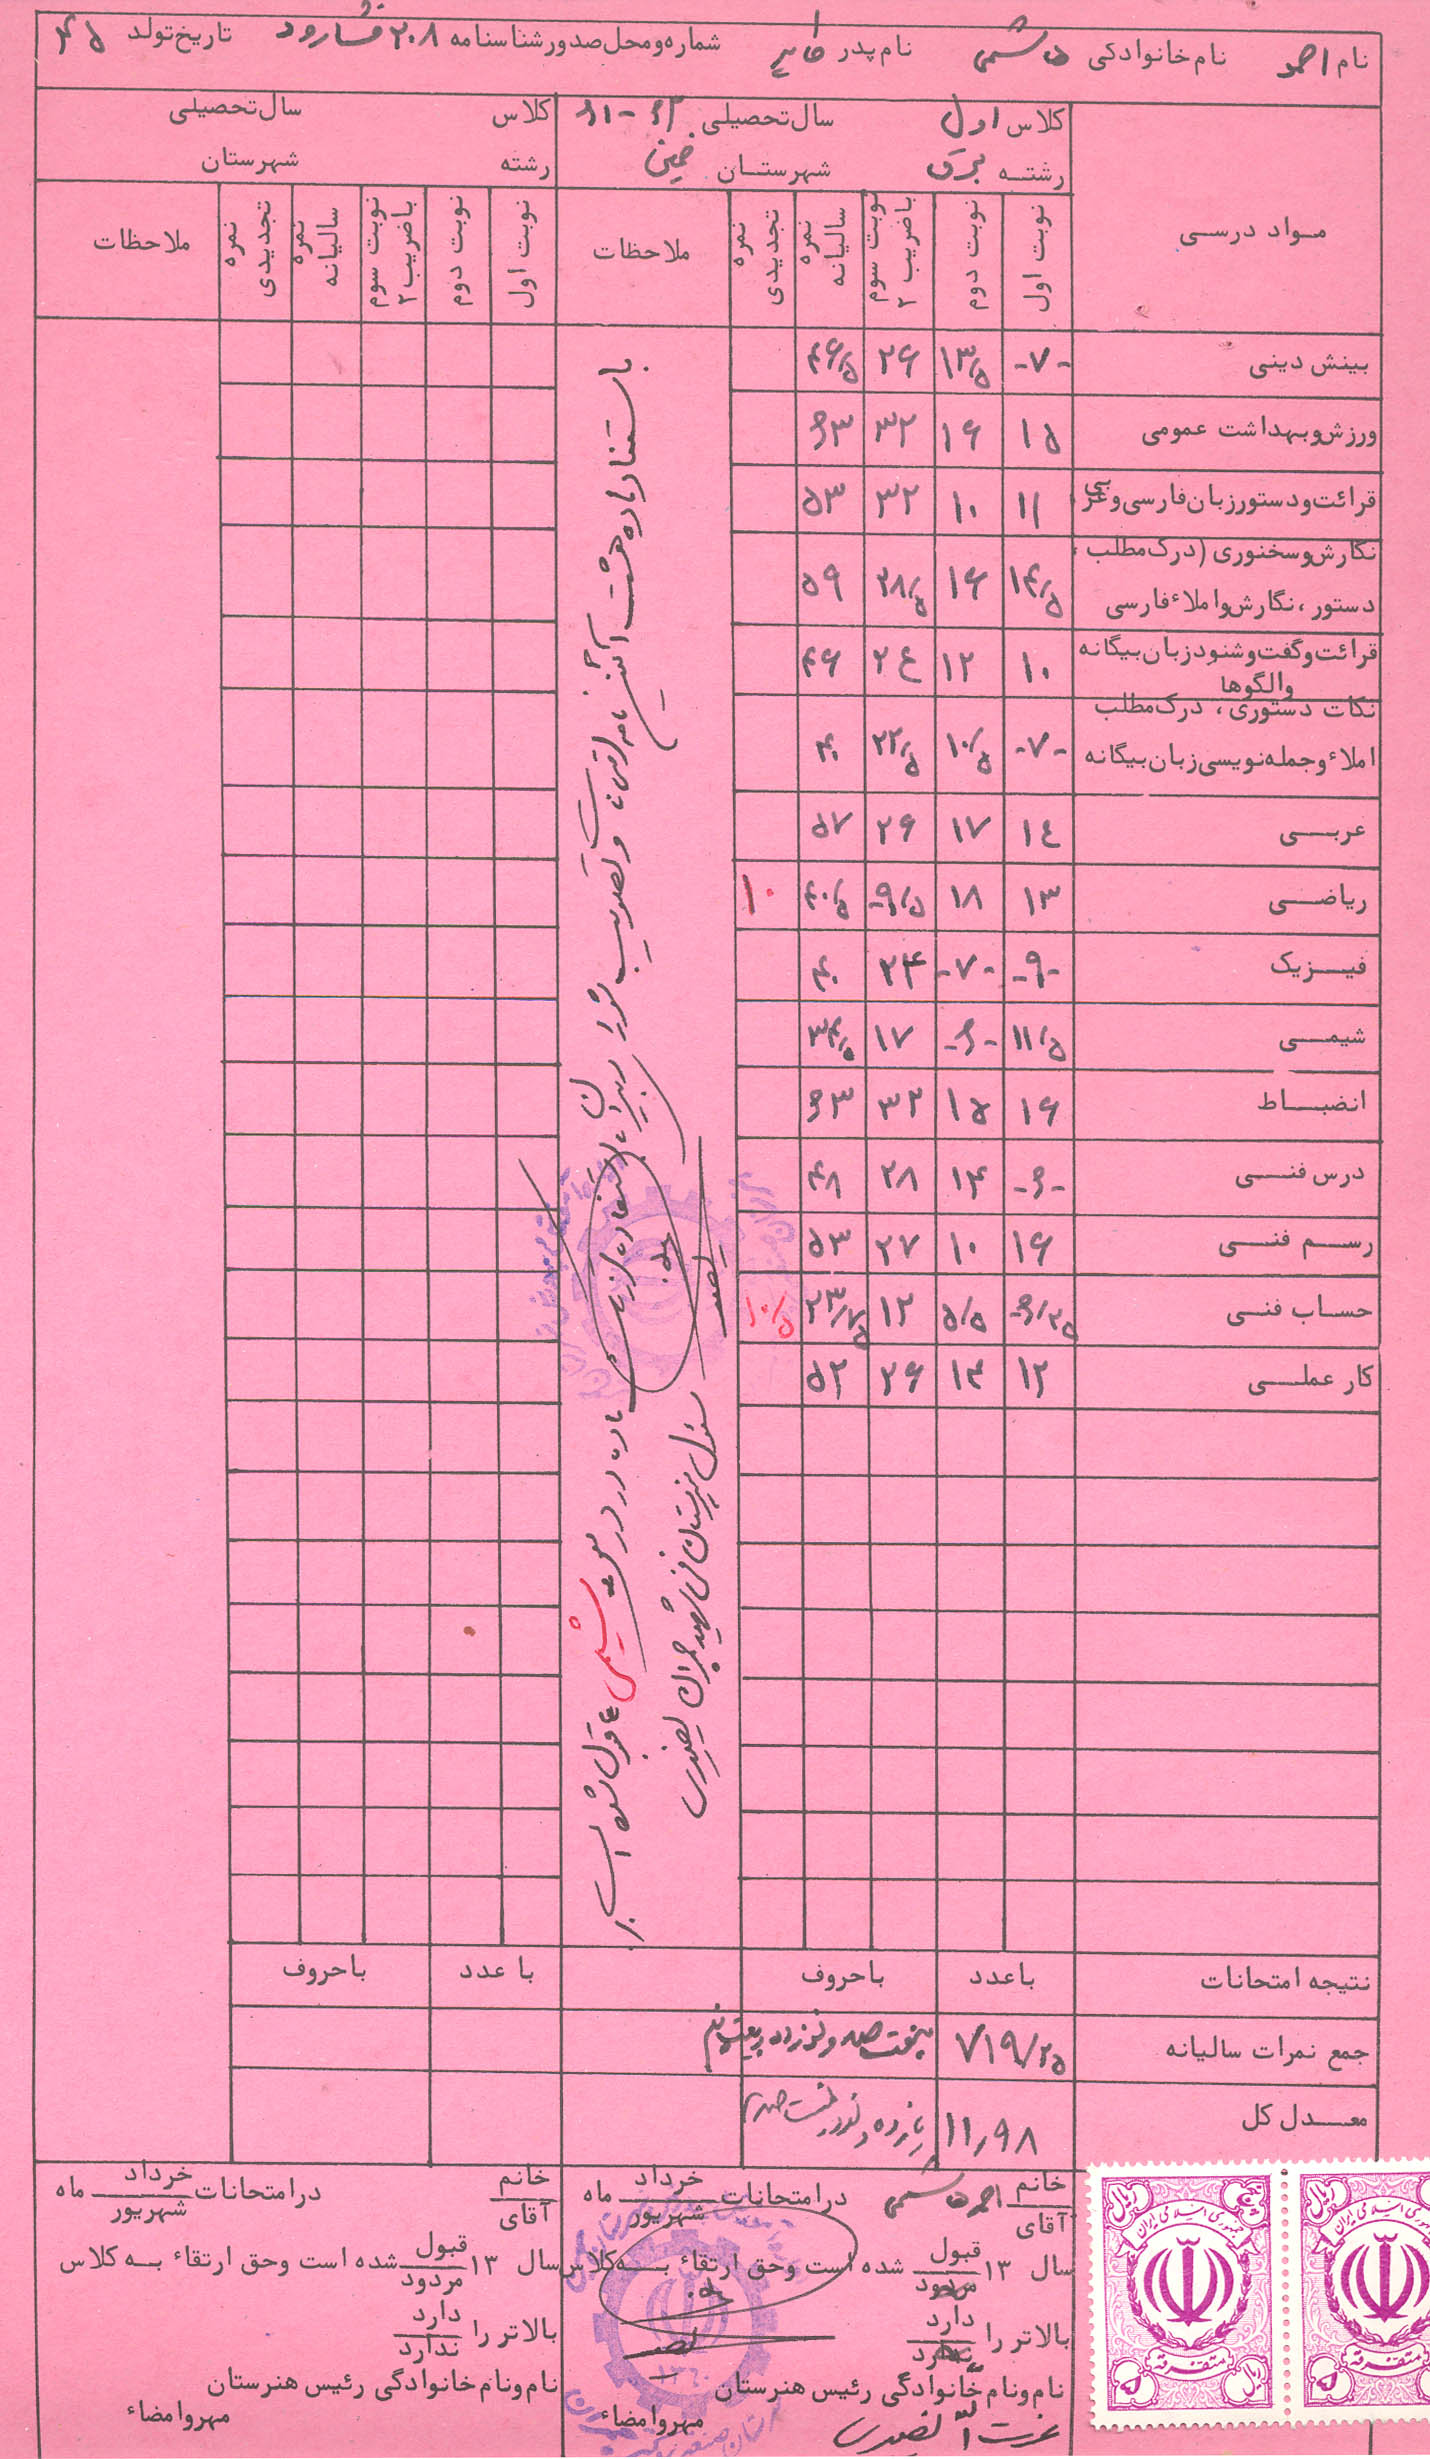 نام احمد نام خانوادگی هاشمی نام پدر شماره و محل صدور شناسنامه ۲۰۸ تاریخ تولد ۴۵
کلاس اول سال تحصیلی ۶۱-۶۲ کلاس سال تحصیلی
رشته برق شهرستان خمین رشته شهرستان
مواد درسی نوبت اول نوبت دوم نوبت سوم باضریب ۲ نمره سالیانه نمره تجدیدی ملاحظات نوبت اول نوبت دوم نوبت سوم باضریب ۲ نمره سالیانه نمره تجدیدی ملاحظات
بینش دینی -۷- ۱۳/۵ ۲۶ ۴۶/۵
ورزش و بهداشت عمومی ۱۵ ۱۶ ۳۲ ۶۳
قرائت و دستور زبان فارسی و عربی ۱۱ ۱۰ ۳۲ ۵۳
نگارش و سخنوری (درک مطلب ،
دستور ، نگارش و املاء فارسی ۱۴/۵ ۱۶ ۲۸/۵ ۵۹
قرائت و گفت و شنود زبان بیگانه
والگوها ۱۰ ۱۲ ۲٤ ۴۶
نکات دستوری ، درک مطلب
املاء و جمله نویسی زبان بیگانه -۷- ۱۰/۵ ۲۲/۵ ۴۰
عربی ۱٤ ۱۷ ۲۶ ۵۷
ریاضی ۱۳ ۱۸ -۹/۵ ۴۰/۵ ۱۰
فیزیک -۹- -۷- ۲۴ ۴۰
شیمی ۱۱/۵ -۶- ۱۷ ۳۴/۵
انضباط ۱۶ ۱۵ ۳۲ ۶۳
درس فنی -۶- ۱۴ ۲۸ ۴۸
رسم فنی ۱۶ ۱۰ ۲۷ ۵۳
حساب فنی -۶/۲۵ ۵/۵ ۱۲ ۲۳/۷۵ ۱۰/۵
کار عملی ۱۲ ۱۴ ۲۶ ۵۲
با استفاده از ماده هشت آئین نامه امتحانات و تصویب شورای دبیران با استفاده از ماده در درس شیمی قبول شده است
مسئول هنرستان فنی شهید چمران نصیری
نتیجه امتحانات با عدد باحروف با عدد باحروف
جمع نمرات سالیانه ۷۱۹/۲۵ هفتصد و نوزده و بیست و پنج
معدل کل ۱۱٫۹۸ یازده و نود و هشت صدم
خانم آقای احمد هاشمی درامتحانات خرداد شهریور ماه
سال ۱۳ قبول مردود شده است وحق ارتقاء به کلاس
بالاتر را دارد ندارد
نام و نام خانوادگی رئیس هنرستان مهر و امضاء
عزت اله نصیری
خانم آقای درامتحانات خرداد شهریور ماه
سال ۱۳ قبول مردود شده است وحق ارتقاء به کلاس
بالاتر را دارد ندارد
نام و نام خانوادگی رئیس هنرستان
مهر و امضاء
۱۳۶۰
جمهوری اسلامی ایران
پنج ریال
متفرقه
۵ ریال
جمهوری اسلامی ایران
ریال
متفرقه